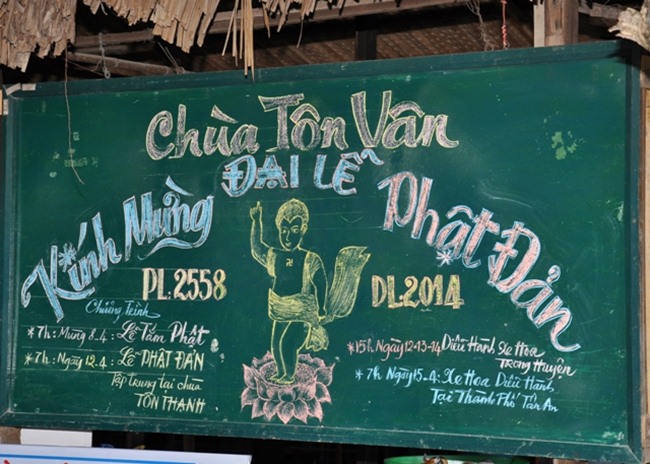 Chùa Tôn Vân
Kính Mừng ĐẠI LỄ Phật Đản
PL: 2558
DL: 2014
Chương Trình
*7h: Mùng 8-4: Lễ Tắm Phật
*7h: Ngày 12.4: Lễ PHẬT ĐẢN
Tập Trung tại chùa
TÔN THẠNH
*15h Ngày 12-13-14 Diễu Hành Xe Hoa
Trong Huyện
*7h Ngày 15-4: Xe Hoa Diễu Hành
Tại Thành Phố Tân An